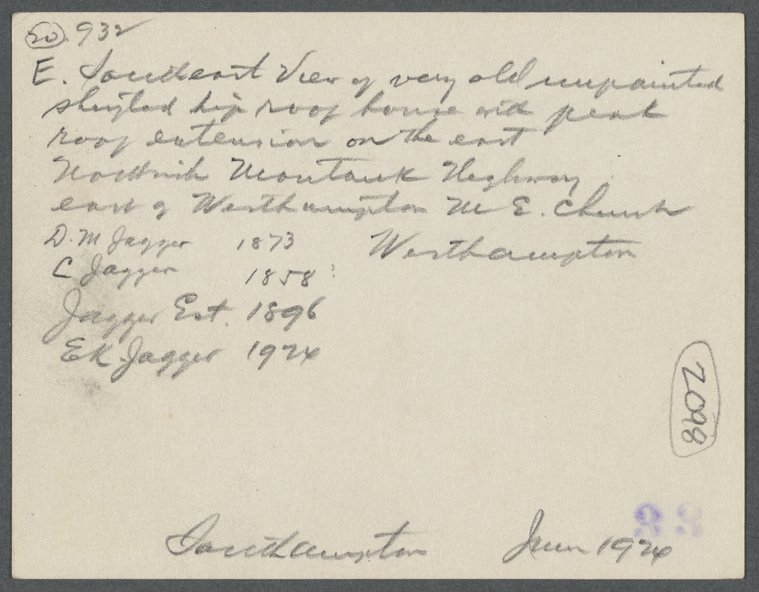 20. 932
E. Southeast View of very old unpainted
shingled hip roof house with peak
roof extension on the east
North side Montauk Highway
east of Westhampton M E. Church
D. M Jagger 1873 Westhampton
C Jagger 1858
Jagger Est. 1896
E K. Jagger 1924
2098
Southampton June 1924